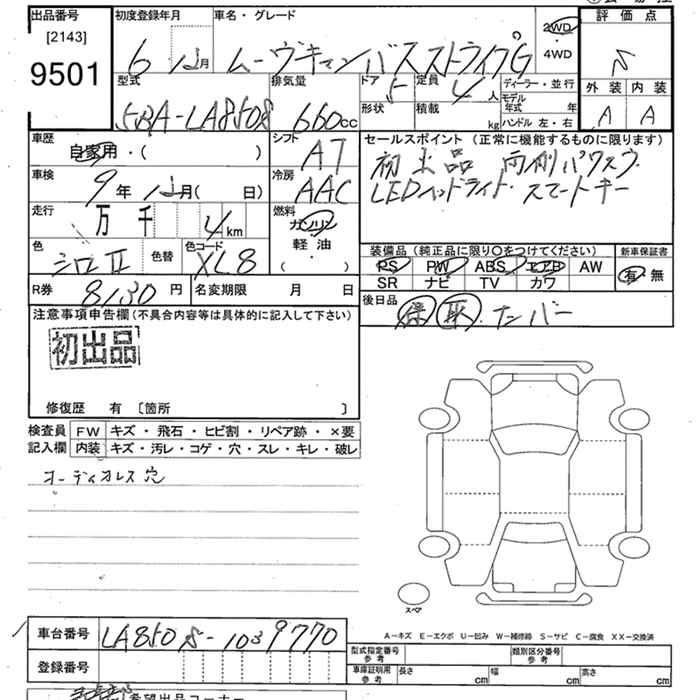 出品番号
[2143]
9501
初度登録年月
6 12月
車名・グレード
ムーヴキャンバスストライプG
2WD
・
4WD
評価点
S
外装 内装
A A
型式
5BA-LA850S
排気量
660cc
ドア
5
形状
定員
4人
積載
kg
ディーラー・並行
モデル年式 年
ハンドル 左・右
車歴
自家用・( )
シフト
AT
車検
9年12月( 日)
冷房
AAC
走行
万 千 4km
燃料
ガソリン
・
軽油
( ・ )
色
シロII
色替
色コード
XL8
R券 8130円
名変期限 月 日
セールスポイント (正常に機能するものに限ります)
初出品 両側パワスラ
LEDヘッドライト・スマートキー
装備品(純正品に限り○をつけてください)
PS PW ABS エアB AW
SR ナビ TV カワ
新車保証書
有・無
後日品
保 取 ナンバー
注意事項申告欄(不具合内容等は具体的に記入して下さい)
初出品
修復歴 有 〔箇所 〕
検査員記入欄
FW キズ・飛石・ヒビ割・リペア跡・×要
内装 キズ・汚レ・コゲ・穴・スレ・キレ・破レ
オーディオレス穴
スペア
A-キズ E-エクボ U-凹み W-補修跡 S-サビ C-腐食 XX-交換済
車台番号 LA850S-1039770
登録番号
型式指定番号
参考
類別区分番号
参考
車庫証明用
参考
長さ cm 幅 cm 高さ cm
希望出品コーナー